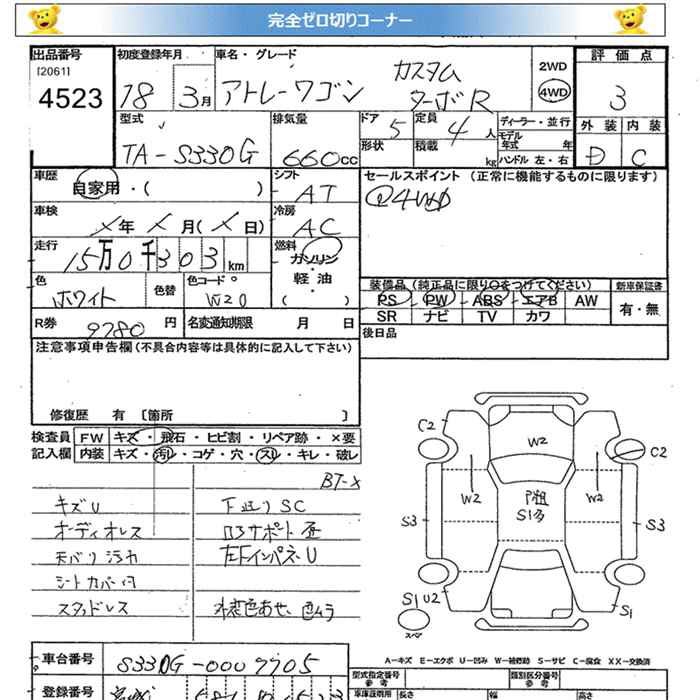 完全ゼロ切りコーナー
出品番号 初度登録年月 車名・グレード 2WD 評価点
[2061]
4523 18 3月 アトレーワゴン カスタム ターボR 4WD 3
型式 排気量 ドア 定員 ディーラー・並行 外装 内装
TA-S330G 660cc 5 4人 モデル年式 年 D C
形状 積載 kg ハンドル 左・右
車歴 自家用・( ) シフト AT セールスポイント (正常に機能するものに限ります)
車検 ×年 ×月(×日) 冷房 AC ①4WD
走行 15万0千303km 燃料 ガソリン・軽油( )
色 ホワイト 色替 色コードNo W20 装備品(純正品に限り○をつけてください) 新車保証書
PS PW ABS エアB AW 有・無
SR ナビ TV カワ
R券 9780円 名変通知期限 月 日 後日品
注意事項申告欄(不具合内容等は具体的に記入して下さい)
修復歴 有 [箇所 ]
検査員 FW キズ・飛石・ヒビ割・リペア跡・×要
記入欄 内装 キズ・汚レ・コゲ・穴・スレ・キレ・破レ
BT-×
キズU 下廻りSC
オーディオレス
天バリ汚れ 左下インパネU
シートカバー付
スタッドレス 外装色あせ、色ムラ
C2 W2 C2
W2 W2
P粗
S1多
S3 S3
S1U2 S1
スペア
A-キズ E-エクボ U-凹み W-補修跡 S-サビ C-腐食 XX-交換済
車台番号 S330G-0007705 型式指定番号 参考 類別区分番号 参考
登録番号 車庫証明用 参考 長さ 幅 高さ